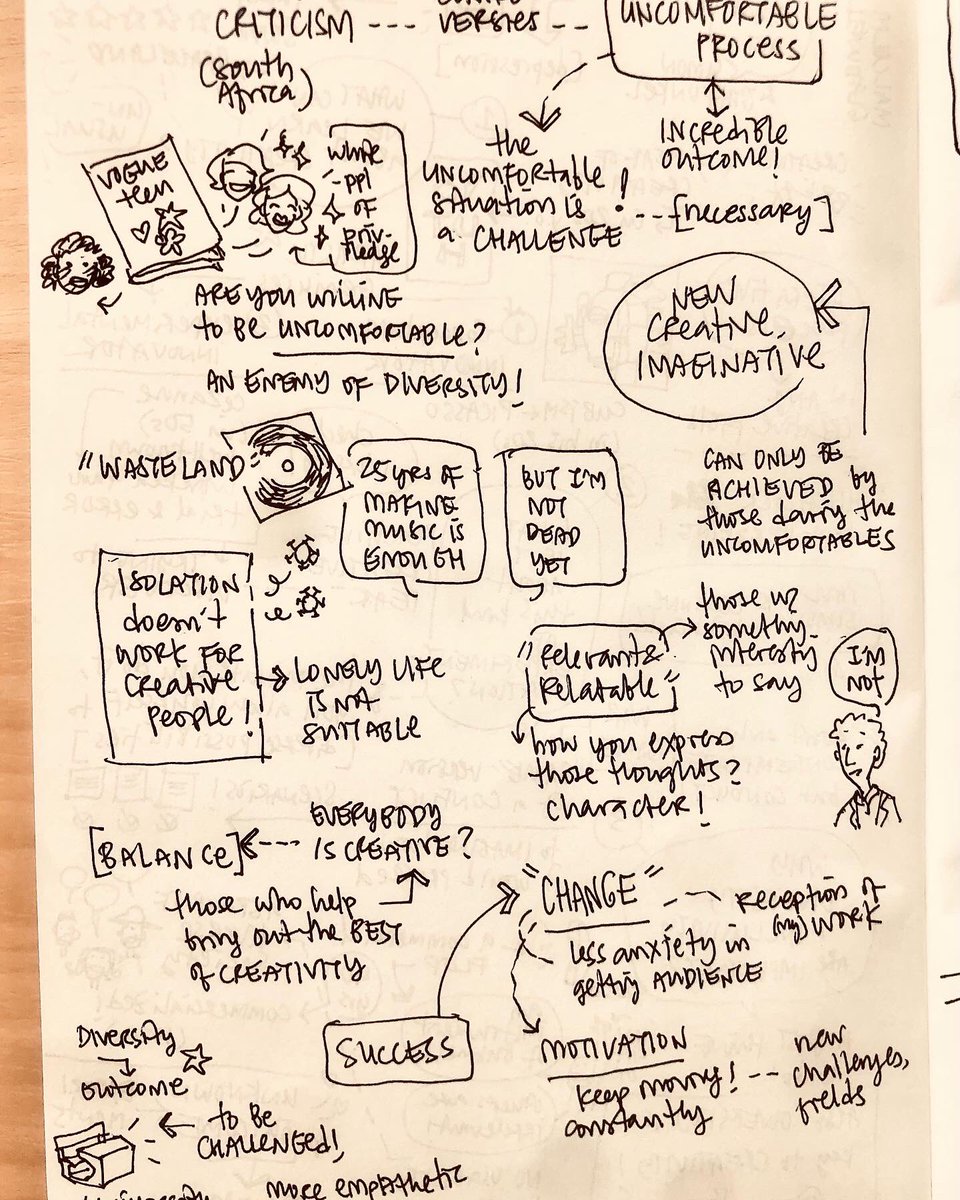 CRITICISM --- VERSIES --
UNCOMFORTABLE
PROCESS
(South
Africa)
VOGUE
teen
white
ppl
OF
priv-
ledge
the
UNCOMFORTABLE
situation is
a CHALLENGE !
INCREDIBLE
outcome!
--[necessary]
ARE YOU WILLING
to BE UNCOMFORTABLE?
AN ENEMY OF DIVERSITY!
NEW
Creative,
IMAGINATIVE
CAN ONLY BE
ACHIEVED by
those daring the
UNCOMFORTABLES
"WASTELAND
25 yrs OF
MAKING
MUSIC is
ENOUGH
BUT I'M
NOT
DEAD
YET
ISOLATION
doesn't
WORK FOR
Creative
People!
LONELY LIFE
IS NOT
SUITABLE
"Relevant &
Relatable"
those w/
somethg
interestg
to say
I'M
NOT
how you express
those thoughts?
character!
[BALANCE]
EVERYBODY
IS CREATIVE?
those who help
bring out the BEST
of CREATIVITY
"CHANGE"
RECEPTION of
(my) WORK
less anxiety in
gettig AUDIENCE
SUCCESS
MOTIVATION
keep moving!
constantly
new
challenges,
fields
Diversity
outcome
to BE
CHALLENGED!
more empathetic